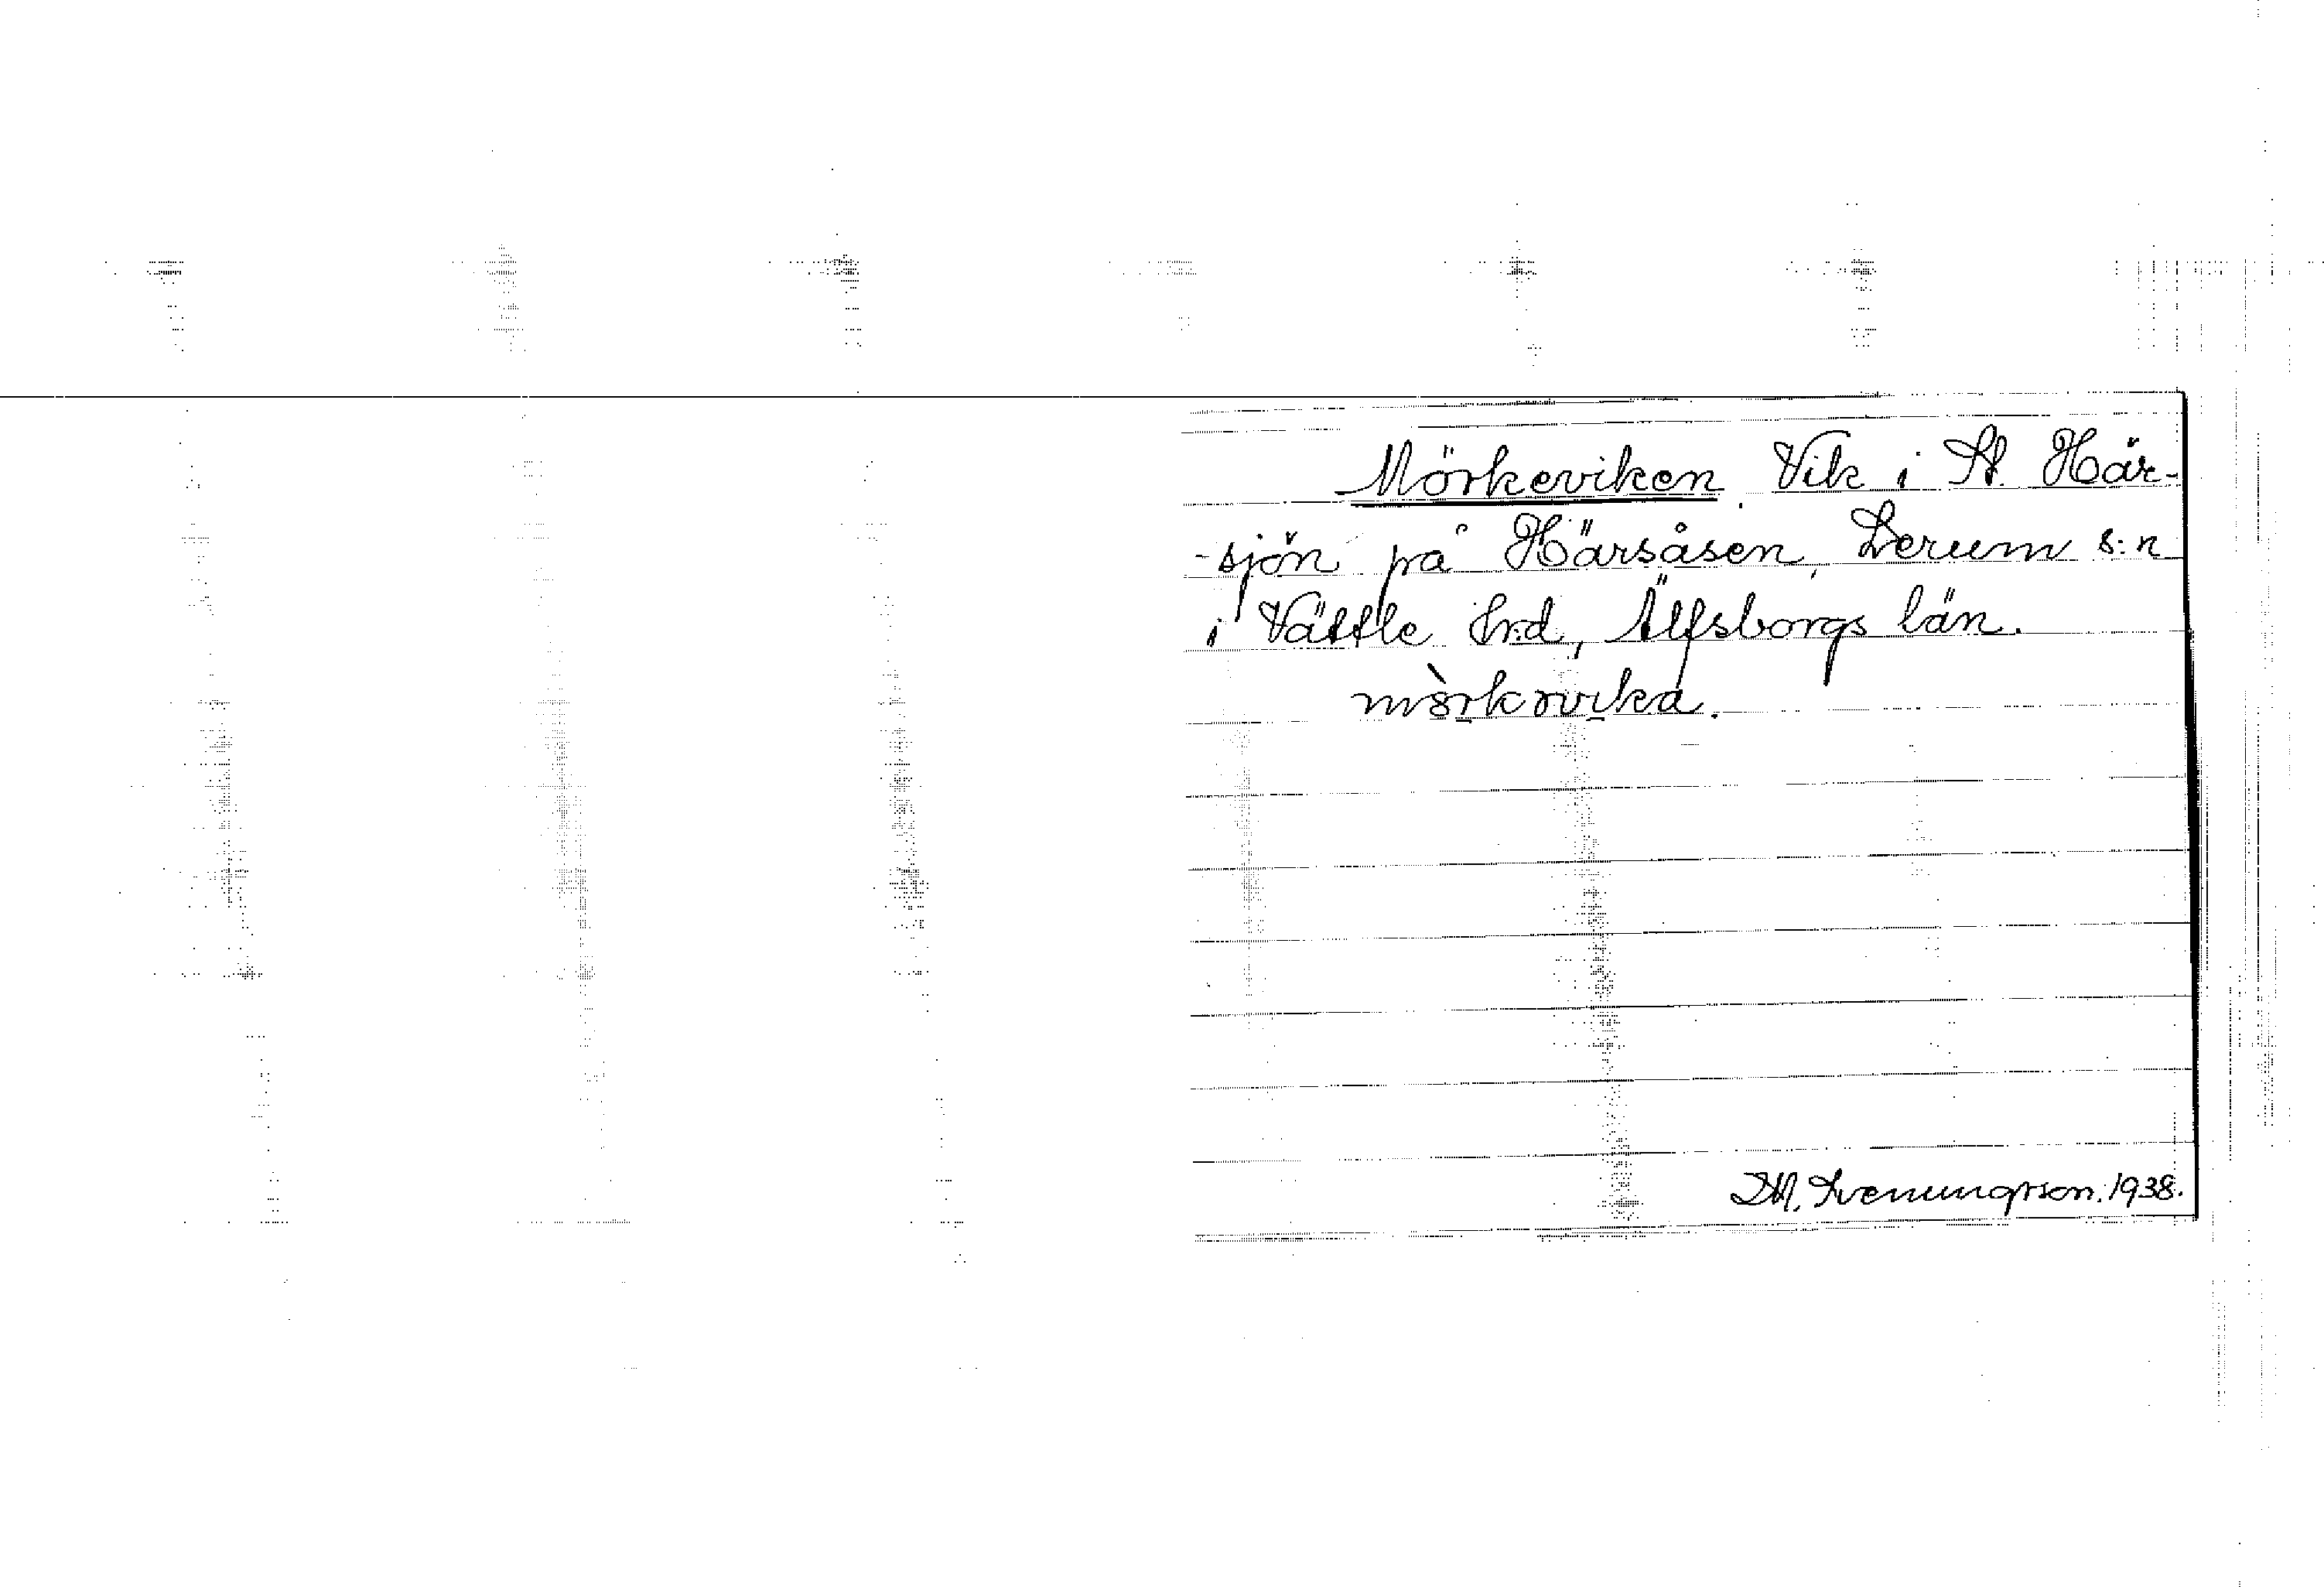 Mörkeviken. Vik i St. Här-
-sjön på Härsåsen, Lerum s:n
i Vättle hrd, Älfsborgs län.
Svenungsson. 1938.